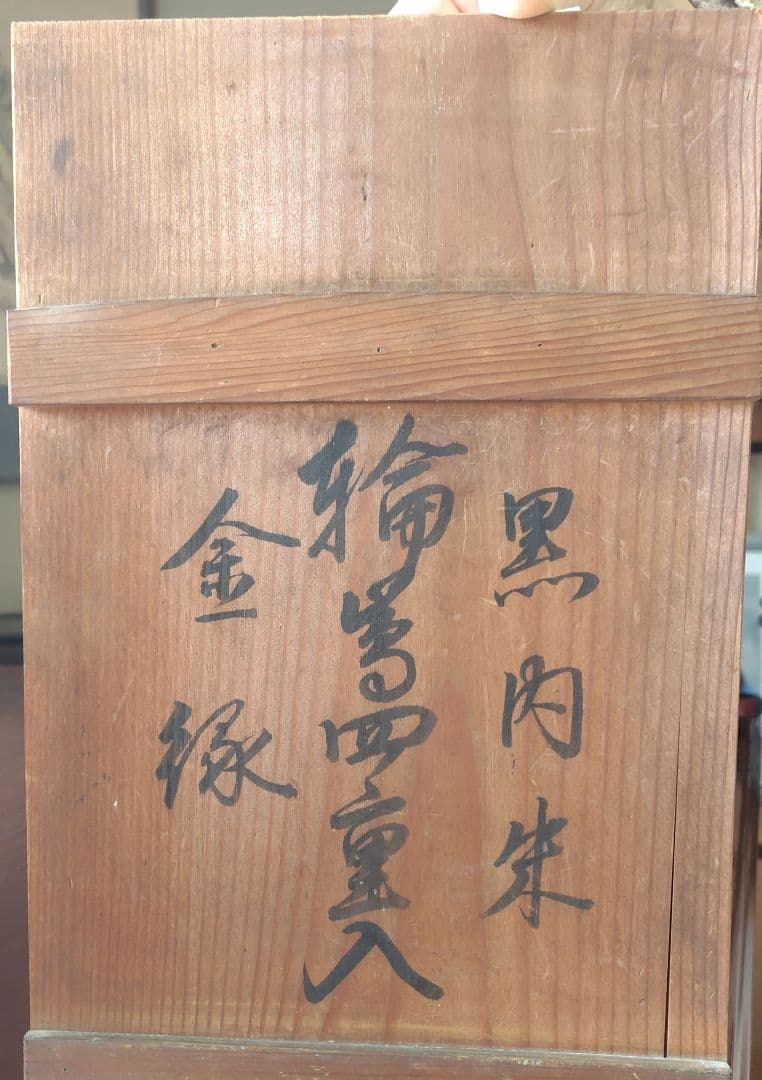 黒内朱
輪嶌四重入
金縁